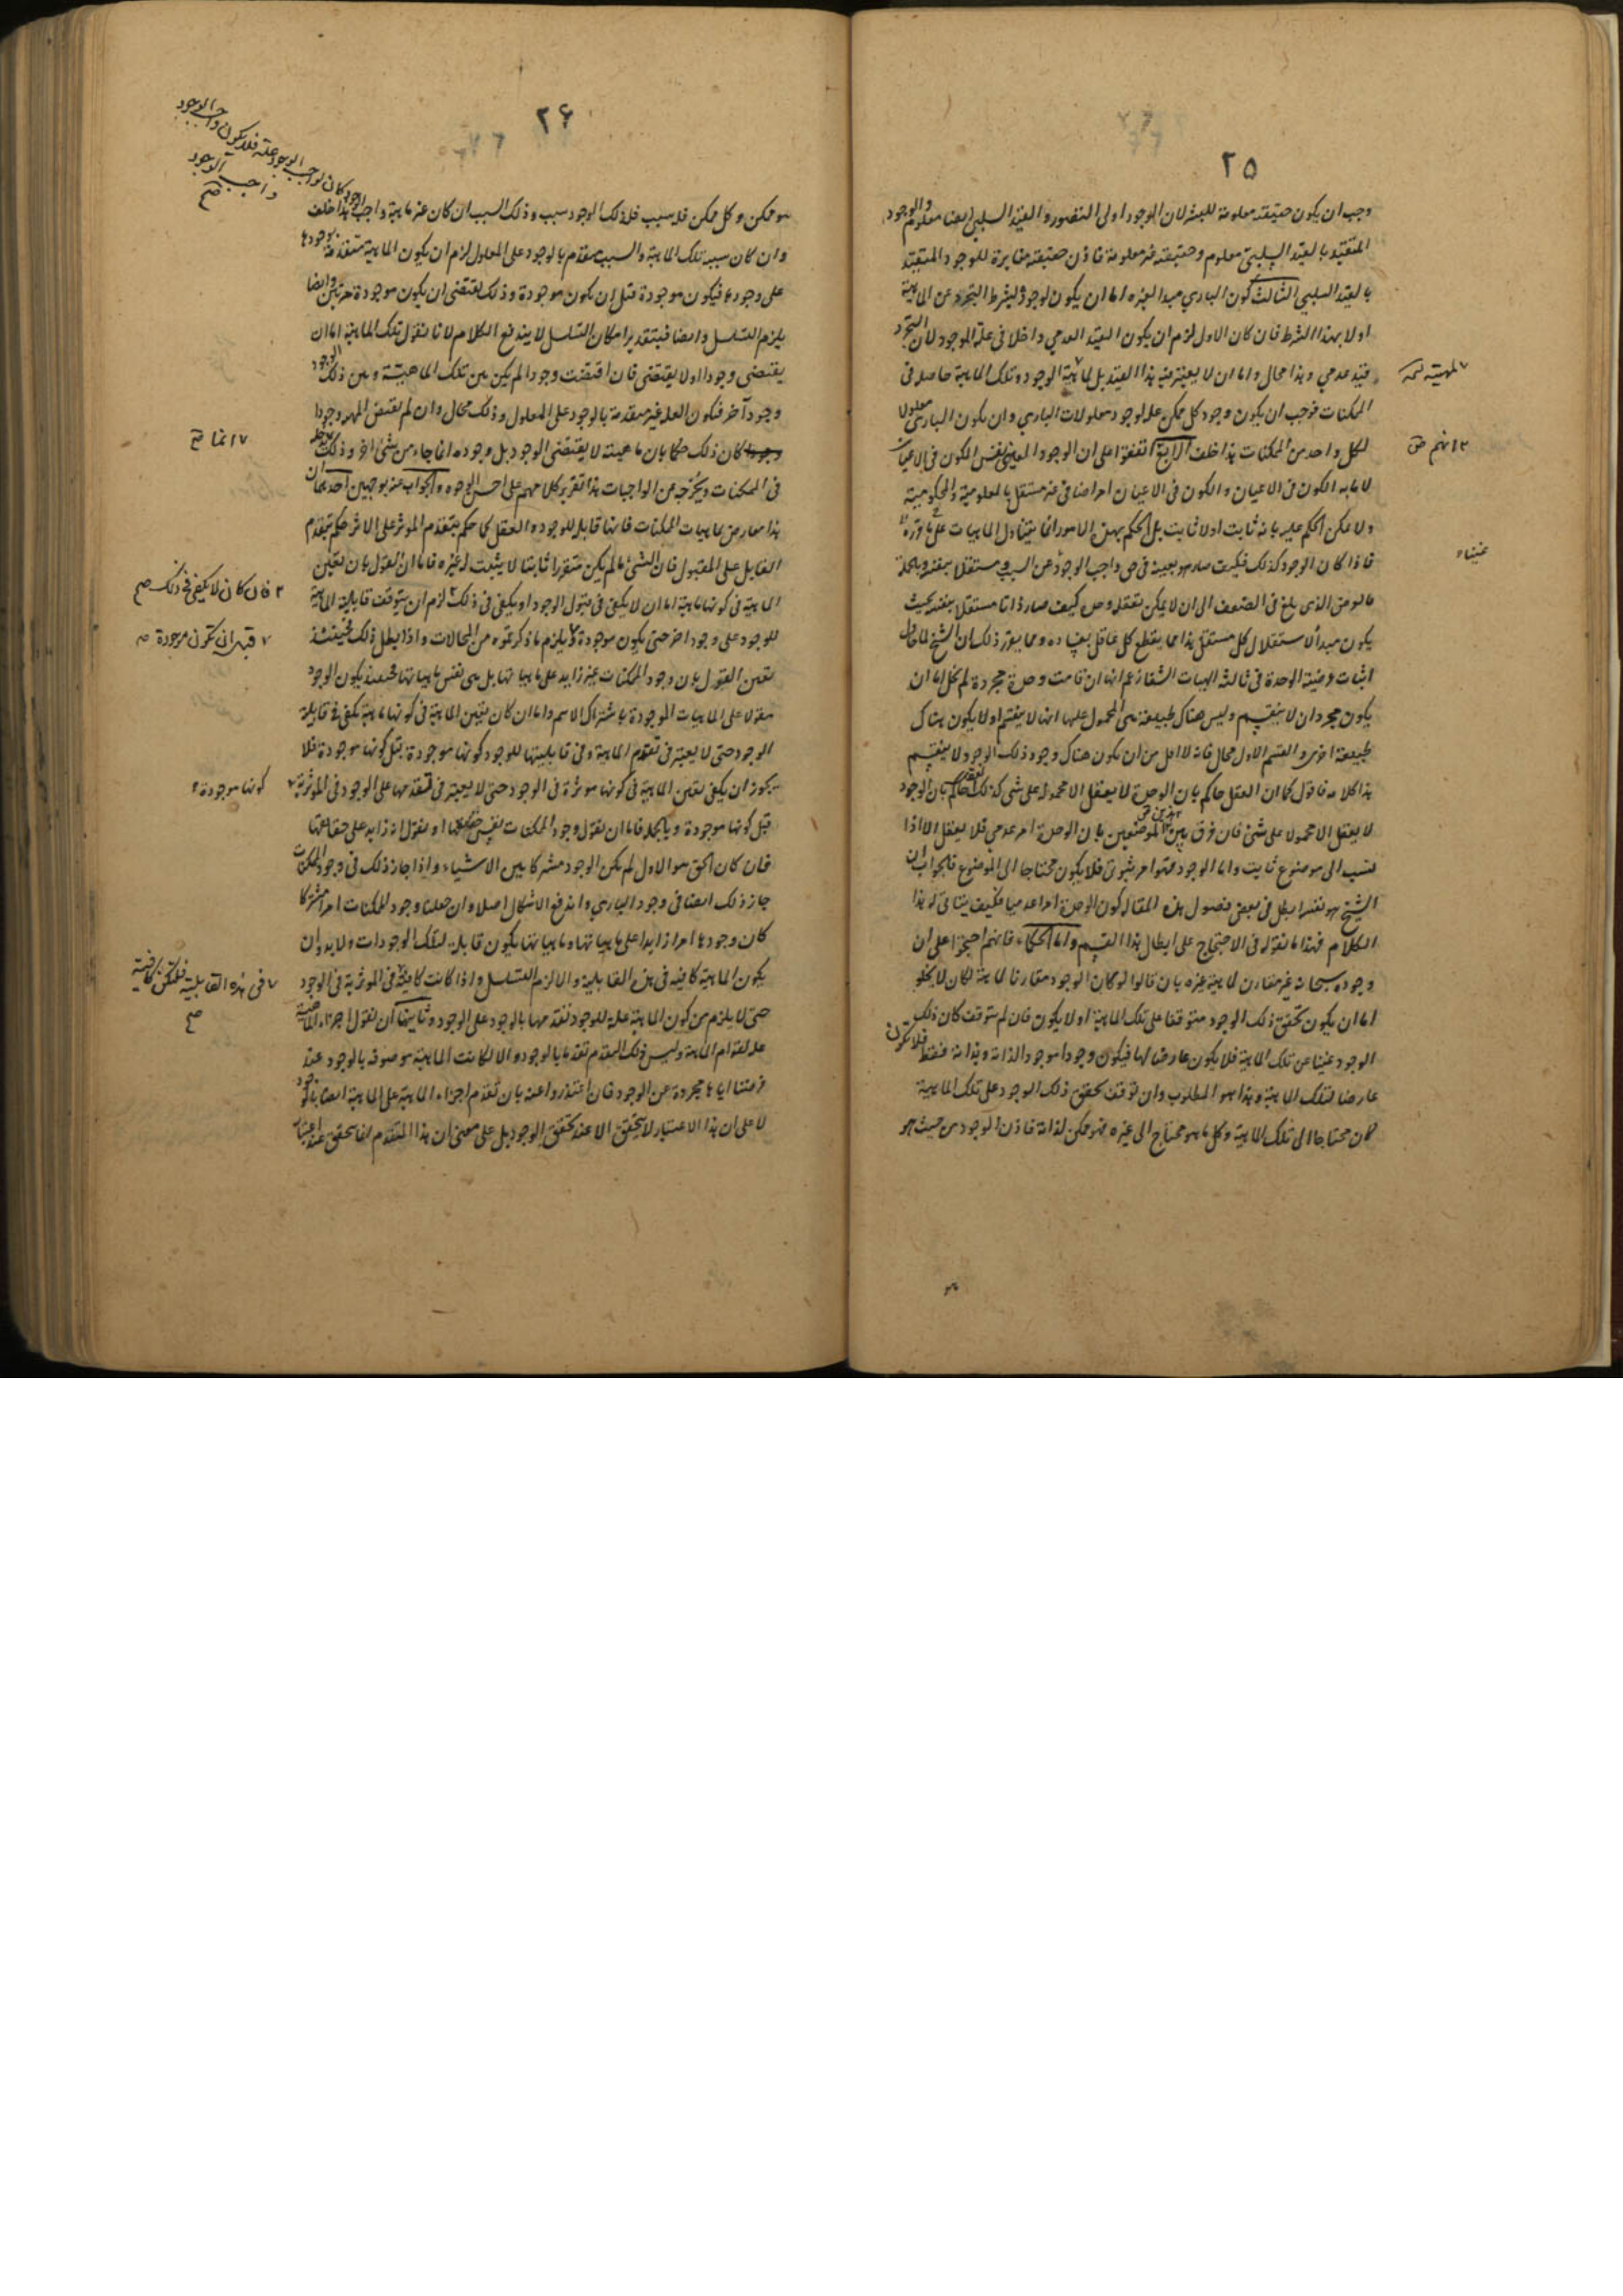 ٢٥
وجب ان يكون حقيقته معلومة للبشر لان الوجود اولى التصور والقيد السلبى ايضا معلوم والوجود
المتقيد بالقيد السلبى معلوم وحقيقته غير معلومة فاذن حقيقته مغايرة للوجود المتقيد
بالقيد السلبى الثالث كون البارى مبدا لغيره اما ان يكون لوجوده بشرط التجرد عن الماهية
اولا بهذا الشرط فان كان الاول لزم ان يكون القيد العدمى داخلا فى علة الوجود لان التجرد
قيد عدمى وهذا محال واما ان لا يعتبر فيه هذا القيد بل ماهية الوجود وتلك الماهية حاصلة فى
الممكنات فوجب ان يكون وجود كل ممكن علة لوجود معلولات البارى وان يكون البارى معلولا
لكل واحد من الممكنات هذا خلف الرابع اتفقوا على ان الوجود المعنى نفس الكون فى الاعيان
لا ما به الكون فى الاعيان والكون فى الاعيان امر اضافى غير مستقل بالمعلومية والمحكومية
ولا يمكن الحكم عليه بانه ثابت اولا ثابت بل الحكم بهذه الامور انما يتناول الماهيات على ما قررناه
فاذا كان الوجود كذلك فكيف صار هو بعينه فى حق واجب الوجود غنيا عن السبب مستقلا بنفسه وبالجملة
فالوصف الذى بلغ فى الضعف الى ان لا يمكن تعقله وحده كيف صار ذاتا مستقلة بنفسه بحيث
يكون مبدأ لاستقلال كل مستقل هذا مما يقطع كل عاقل بفساده ومما يقرر ذلك ان الشيخ لما حاول
اثبات عرضية الوحدة فى ثالثة الهيات الشفا زعم انها ان قامت وحدة مجردة لم يخل اما ان
يكون مجرد ان لا ينقسم وليس هناك طبيعة هى المحمول عليها انها لا ينقسم او لا يكون هناك
طبيعة اخرى والقسم الاول محال فانه لا اقل من ان يكون هناك وجود ذلك الوجود لا ينقسم
هذا كلامه فاقول كما ان العقل حاكم بان الوحدة لا يعقل الا محمولة على شى كذلك العقل حاكم بان الوجود
لا يعقل الا محمولا على شئ فان فرق بين هذين الموضعين بان الوحدة امر عدمى فلا يعقل الا اذا
نسب الى موضوع ثابت واما الوجود فهو امر ثبوتى فلا يكون محتاجا الى الموضوع فالجواب ان
الشيخ هو نفسه ابطل فى بعض فصول هذه المقالة كون الوحدة امرا عدميا فكيف يتاتى له هذا
الكلام فهذا ما نقوله فى الاحتجاج على ابطال هذا القسم واما الحكماء فانهم احتجوا على ان
وجوده سبحانه غير مقارن لماهية غيره بان قالوا لو كان الوجود مقارنا لماهية لكان لا يخلو
اما ان يكون تحقق ذلك الوجود متوقفا على تلك الماهية او لا يكون فان لم يتوقف كان ذلك
الوجود غنيا عن تلك الماهية فلا يكون عارضا لها فيكون وجودا موجودا لذاته وبذاته فقط فلا يكون
عارضا لتلك الماهية وهذا هو المطلوب وان توقف تحقق ذلك الوجود على تلك الماهية
كان محتاجا الى تلك الماهية وكل ما هو محتاج الى غيره فهو ممكن لذاته فاذن الوجود من حيث هو
غنيا
٢٦
هو ممكن وكل ممكن فله سبب فلذلك الوجود سبب وذلك السبب ان كان غير ماهية واجب الوجود
كان لواجب الوجود علة فلا يكون واجب الوجود
واجب الوجود
صح
هذا خلف
وان كان سببه تلك الماهية والسبب متقدم بالوجود على المعلول لزم ان يكون الماهية متقدمة بوجودها
على وجودها فيكون موجودة قبل ان يكون موجودة وذلك يقتضى ان يكون موجودة مرتين وايضا
يلزم التسلسل وايضا فبتقدير امكان التسلسل لا يندفع الكلام لانا نقول تلك الماهية اما ان
يقتضى وجودا اولا يقتضى فان اقتضت وجودا لم يكن بين تلك الماهية وبين ذلك الوجود
وجود آخر فتكون العلة غير متقدمة بالوجود على المعلول وذلك محال وان لم تقتض وجودا
كان ذلك حكما بان ماهيته لا يقتضى الوجود بل وجوده انما جاء من شئ اخر وذلك
انما صح
فى الممكنات ويخرجه عن الواجبات هذا تقرير كلامهم على احسن الوجوه والجواب عنه بوجهين احدهما ان
هذا معارض بماهيات الممكنات فانها قابلة للوجود والعقل كما حكم بتقدم الموثر على الاثر حكم بتقدم
القابل على المقبول فان الشئ ما لم يكن متقررا ثابتا لا يثبت له غيره فاما ان نقول بان تعين
الماهية فى كونها ماهية اما ان لا يكفى فى قبول الوجود او يكفى فى ذلك لزم ان يتوقف قابلية الماهية
فان كان لا يكفى فى ذلك صح
للوجود على وجود اخر حتى يكون موجودة ويلزم ما ذكرتموه من المحالات واذا بطل ذلك فحينئذ
قبل ان تكون موجودة
تعين القول بان وجود الممكنات غير زايد على ماهياتها بل هى نفس ماهياتها فحينئذ يكون الوجود
مقولا على الماهيات الموجودة باشتراك الاسم واما ان كان تعين الماهية فى كونها ماهية يكفى فى قابلية
الوجود حتى لا يعتبر فى تقدم الماهية وفى قابليتها للوجود كونها موجودة قبل كونها موجودة فلا
يجوز ان يكفى تعين الماهية فى كونها موثرة فى الوجود حتى لا يعتبر فى تقدمها على الوجود فى الموثرية
كونها موجودة
قبل كونها موجودة وبالجملة فاما ان نقول وجود الممكنات نفس حقايقها او نقول انه زايد على حقايقها
فان كان الحق هو الاول لم يكن الوجود مشتركا بين الاشياء واذا جاز ذلك فى وجود الممكنات
جاز ذلك ايضا فى وجود البارى واندفع الاشكال اصلا وان جعلنا وجود الممكنات امرا مشتركا
كان وجودها امرا زايدا على ماهياتها وماهياتها يكون قابلة لتلك الوجودات ولا بد وان
يكون الماهية كافية فى هذه القابلية والا لزم التسلسل واذا كانت كافية فى الموثرية فى الوجود
فى هذه القابلية فلتكن كافية
صح
حتى لا يلزم من كون الماهية علة للوجود تقدمها بالوجود على الوجود وثانيهما ان نقول اجزاء الماهية
علة لقوام الماهية وليس ذلك التقدم تقدما بالوجود والا لكانت الماهية موصوفة بالوجود عند
فرضنا اياها مجردة عن الوجود فان اعتذروا عنه بان تقدم اجزاء الماهية على الماهية ايضا بالوجود
لا على ان هذا الاعتبار لا يتحقق الا عند تحقق الوجود بل على معنى ان هذا التقدم انما يتحقق عند اعتبار